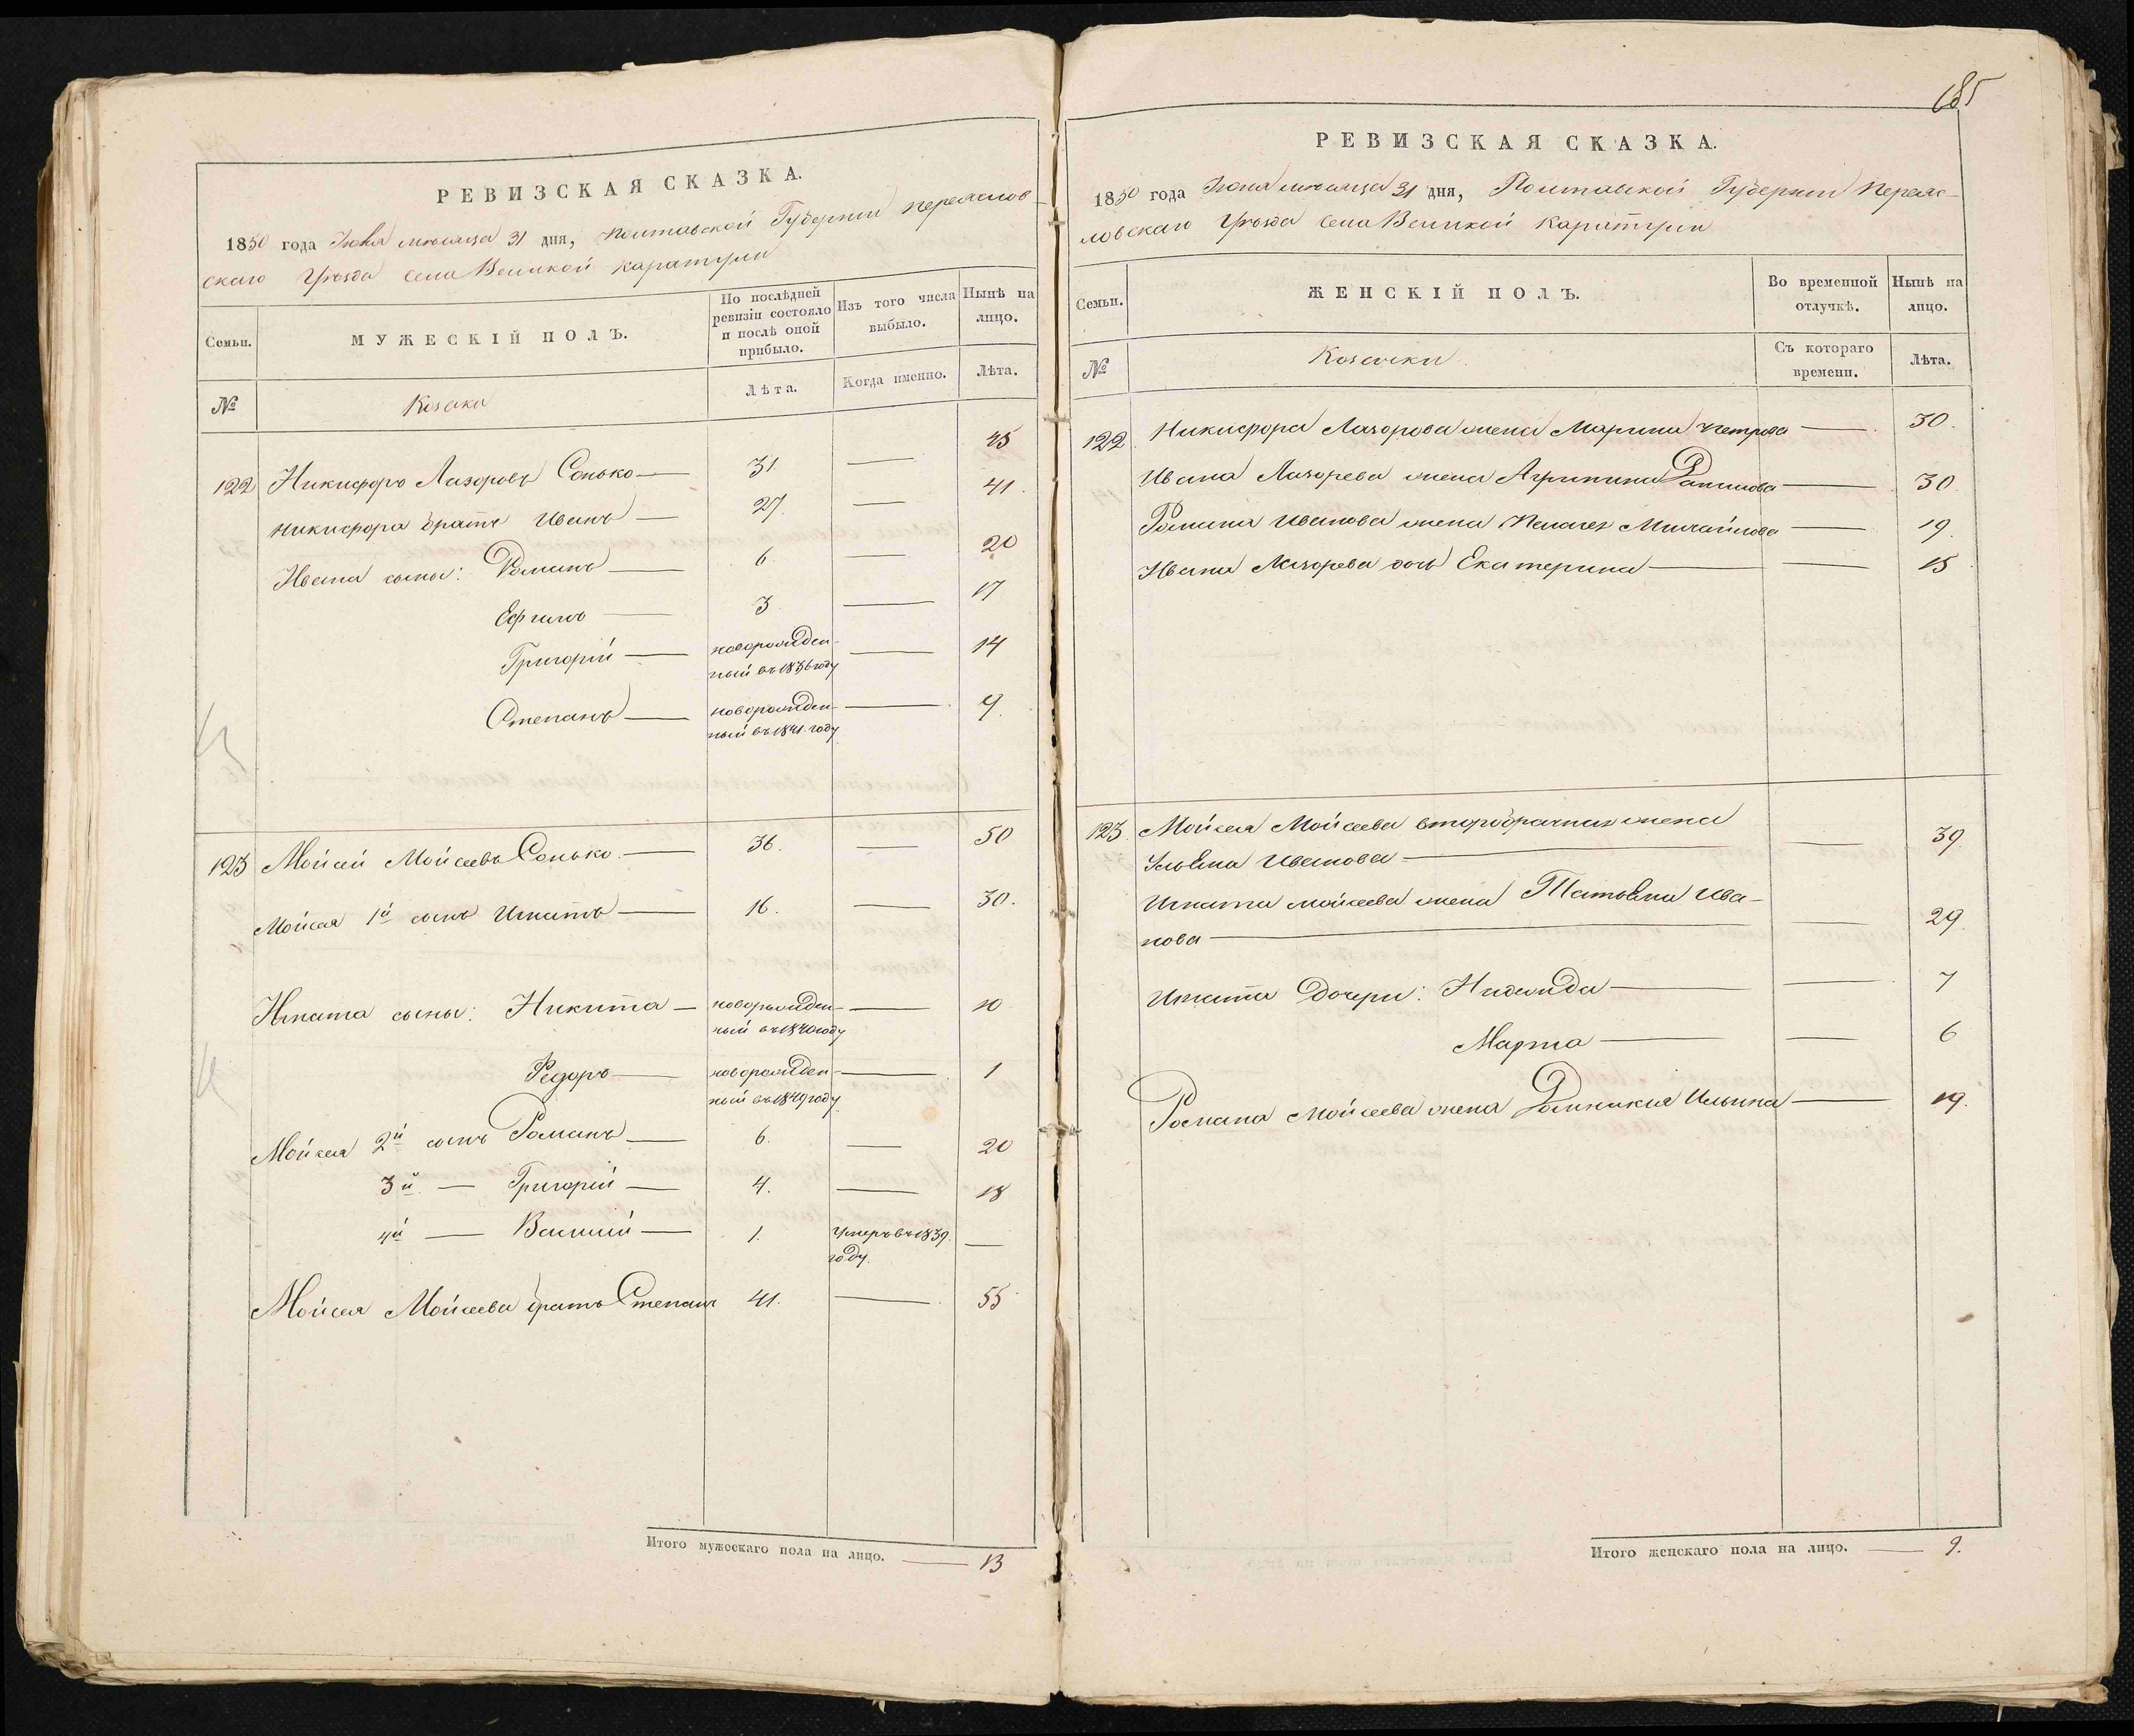 РЕВИЗСКАЯ СКАЗКА.
1850 года Июня мѣсяца 31 дня, Полтавской Губерніи Переяслов-
скаго Уѣзда Села Великой Каратули
Семьи.
МУЖЕСКІЙ ПОЛЪ.
По послѣдней ревизіи состояло и послѣ оной прибыло.
Изъ того числа выбыло.
Нынѣ на лицо.
№
Козаки
Лѣта.
Когда именно.
Лѣта.
122 Никифоръ Лазоровъ Сонько — 31. — 45
Никифора братъ Иванъ — 27. — 41.
Ивана сыны: Романъ — 6. — 20
Ефимъ — 3. — 17
Григорій — новорожден- — 14
ный въ 1836 году
Степанъ — новорожден- — 9.
ный въ 1841 году
123 Мойсей Мойсеевъ Сонько. — 36. — 50
Мойсея 1й сынъ Игнатъ — 16. — 30.
Игната сыны: Никита — новорожден- — 10
ный въ 1840 году
Федоръ — новорожден- — 1
ный въ 1849 году
Мойсея 2й сынъ Романъ — 6. — 20
3й — Григорій — 4. — 18
4й — Василій — 1. Умеръ въ 1839. —
году.
Мойсея Мойсеева братъ Степанъ 41. — 55
Итого мужескаго пола на лицо. — 13
185
РЕВИЗСКАЯ СКАЗКА.
1850 года Июня мѣсяца 31 дня, Полтавской Губерніи Переяс-
ловскаго Уѣзда Села Великой Каратули
Семьи.
ЖЕНСКІЙ ПОЛЪ.
Во временной отлучкѣ.
Нынѣ на лицо.
№
Козачки
Съ котораго времени.
Лѣта.
122 Никифора Лазорова жена Марина Петрова — 30.
Ивана Лазорева жена Агрипина Данилова — 30.
Романа Иванова жена Пелагея Михайлова — 19.
Ивана Лазорева дочь Екатерина — — 15
123 Мойсея Мойсеева второбрачная жена
Ульяна Иванова — — 39.
Игната Мойсеева жена Татьяна Ива-
нова — — 29.
Игната Дочери: Надежда — — 7
Марта — — 6
Романа Мойсеева жена Домникия Ильина — 19.
Итого женскаго пола на лицо. — 9.